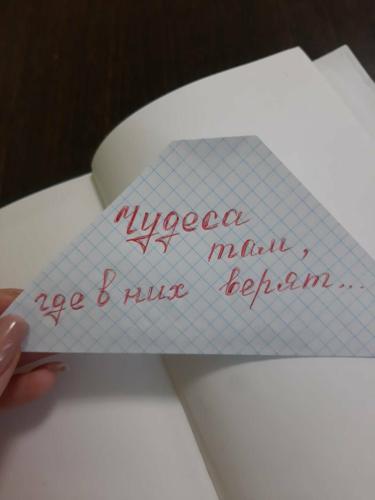 Чудеса
там,
где в них верят...